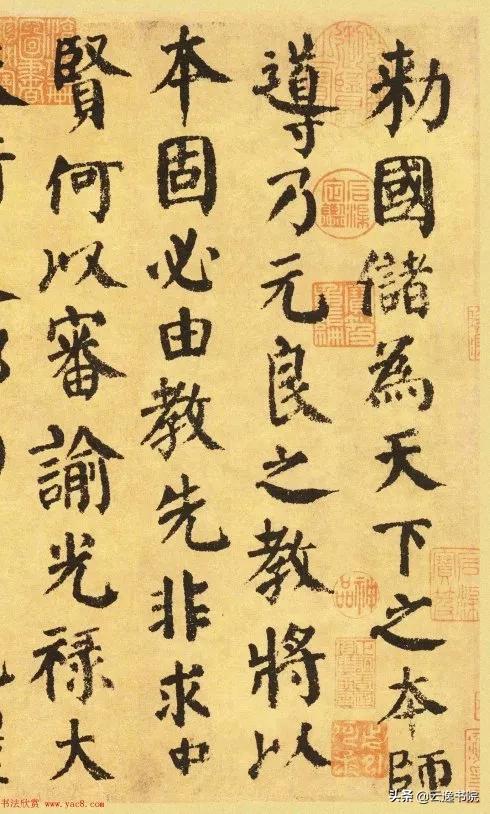 勅國儲為天下之本師
導乃元良之教將以
本固必由教先非求中
賢何以審諭光祿大
神品
书法欣赏 www.yac8.com
头条 @云逸书院